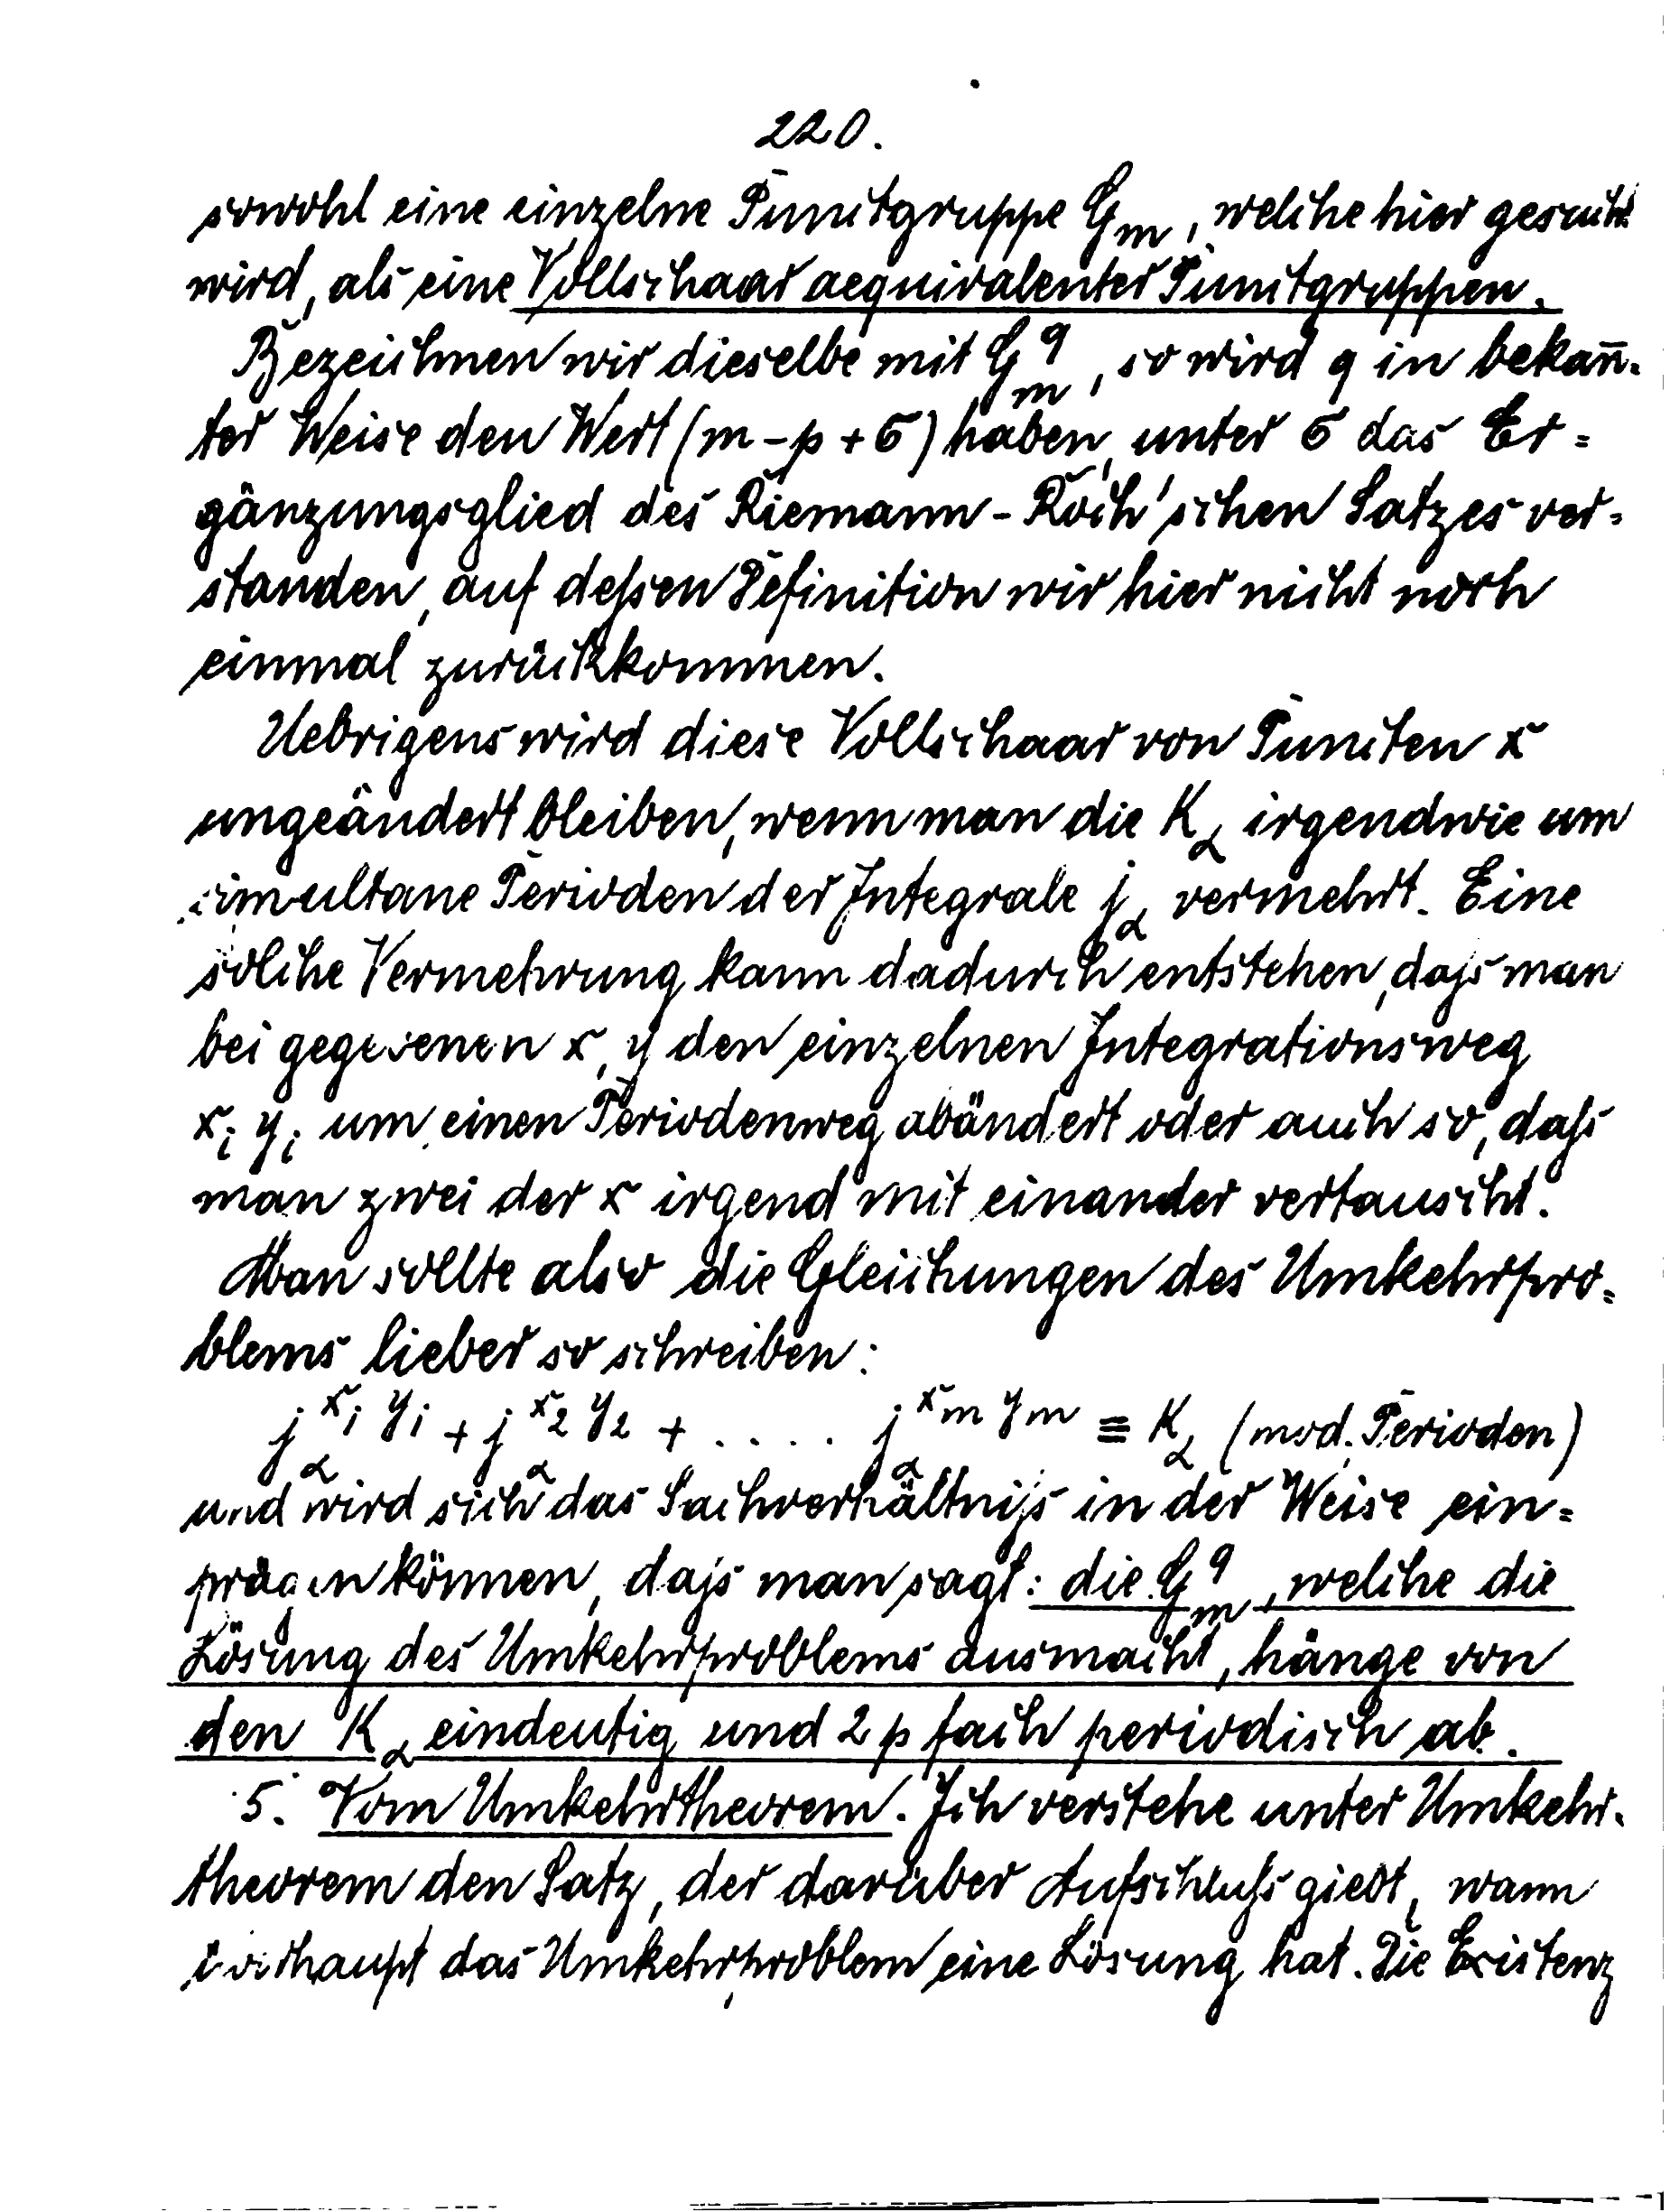 220.
sowohl eine einzelne Punctgruppe G_m, welche hier gesucht
wird, als eine Vollschaar aequivalenter Punctgruppen.
Bezeichnen wir dieselbe mit G_m^q, so wird q in bekañ-
ter Weise den Wert (m - p + σ) haben, unter σ das Er=
gänzungsglied des Riemann-Roch'schen Satzes ver-
standen, auf deßen Definition wir hier nicht noch
einmal zurückkommen.
Uebrigens wird diese Vollschaar von Puncten x
ungeändert bleiben, wenn man die K_α irgendwie um
simultane Perioden der Integrale j_α vermehrt. Eine
solche Vermehrung kann dadurch entstehen, dass man
bei gegebenen x, y den einzelnen Integrationsweg
x_i y_i um einen Periodenweg abändert oder auch so, daß
man zwei der x irgend mit einander vertauscht.
Man sollte also die Gleichungen des Umkehrpro=
blems lieber so schreiben:
j_α^{x_1 y_1} + j_α^{x_2 y_2} + . . . . j_α^{x_m y_m} ≡ K_α (mod. Perioden)
und wird sich das Sachverhältniss in der Weise ein=
prägen können, dass man sagt: die G_m^q, welche die
Lösung des Umkehrproblems ausmacht, hänge von
den K_α eindeutig und 2p fach periodisch ab.
5. Vom Umkehrtheorem. Ich verstehe unter Umkehr-
theorem den Satz, der darüber Aufschluß giebt, wann
überhaupt das Umkehrproblem eine Lösung hat. Die Existenz